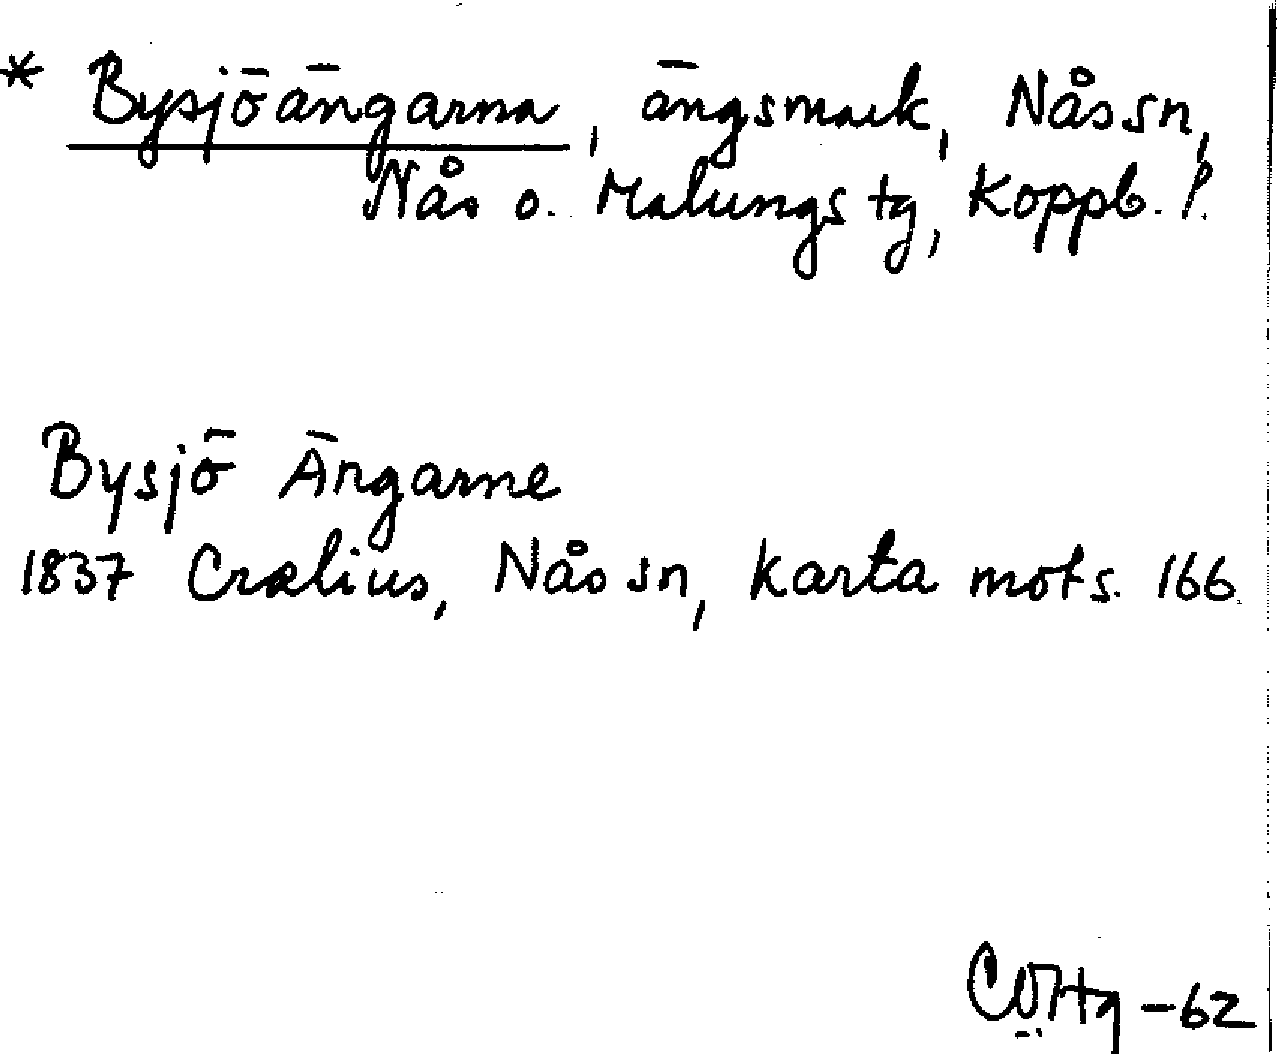 * Bysjöängarna, ängsmark, Nås sn,
Nås o. Malungs tg, Koppb. l.
Bysjö Ängarne
1837 Crælius, Nås sn, karta mot s. 166
-62